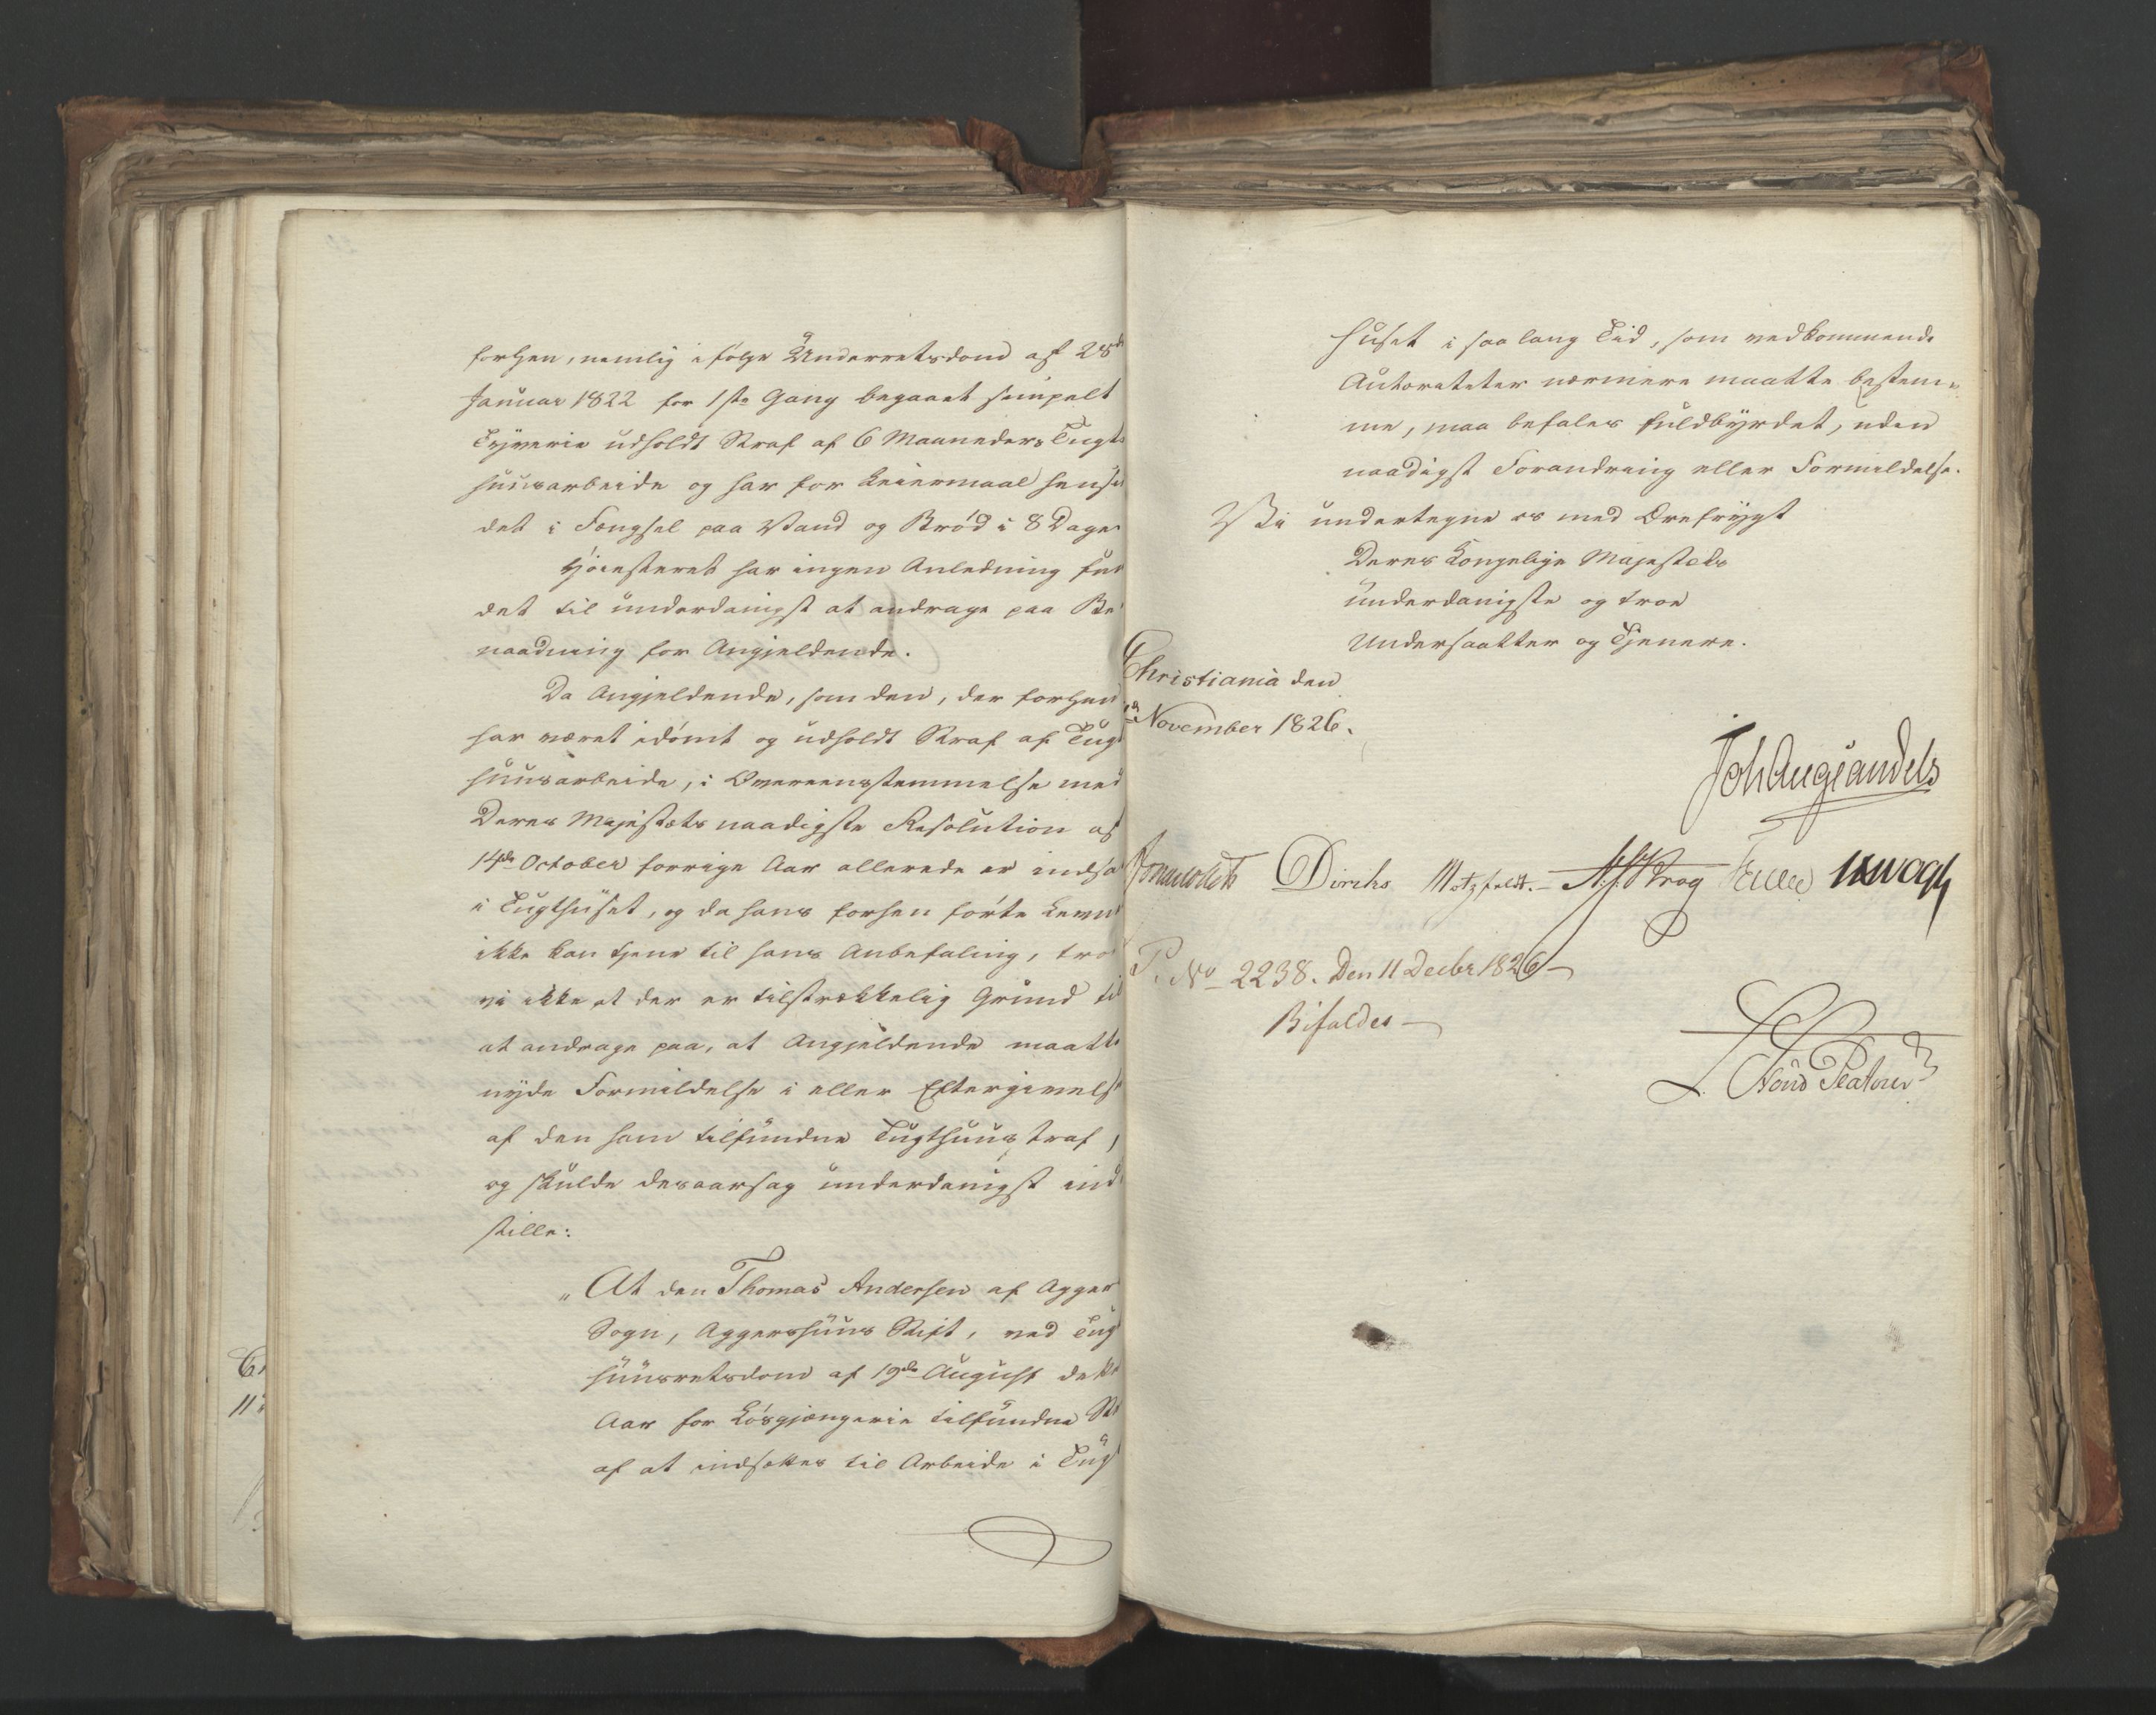 forhen, nemlig ifølge Underretsdom af 28de
Januar 1822 for 1ste Gang begaaet simpelt
Tyverie udholdt Straf af 6 Maaneders Tugt
huusarbeide og har for Leiermaal hensid
det i Fængsel paa Vand og Brød i 8 Dage.
Høiesteret har ingen Anledning fun
det til underdanigst at andrage paa Be
naadning for Angjeldende.
Da Angjeldende, som den, der forhen
har været idømt og udholdt Straf af Tugt
huusarbeide, i Overeensstemmelse med
Deres Majestæts naadigste Resolution af
14de October forrige Aar allerede er indsa
i Tugthuset, og da hans forhen førte Levne
ikke kan tjene til hans Anbefaling, troe
vi ikke at der er tilstrækkelig Grund til
at andrage paa, at Angjeldende maatte
nyde Formildelse i eller Eftergivelse
af den ham tilfundne Tugthuusstraf,
og skulde desaarsag underdanigst ind
stille:
„At den Thomas Andersen af Agger
Sogn, Aggershuus Stift, ved Tugt
huusretsdom af 19de August dette
Aar for Løsgjængerie tilfundne Str
af at indsættes til Arbeide i Tugt
huset i saa lang Tid, som vedkommende
Autoriteter nærmere maatte bestem-
me, maa befales fuldbyrdet, uden
naadigst Forandring eller Formildelse.
Vi undertegne os med Ærefrygt
Deres Kongelige Majestæts
underdanigste og troe
Undersaatter og Tjenere.
Christiania den
November 1826.
Joh Aug Sandels
Diriks Motzfeldt. Krog JHVogt
P. No 2238. Den 11 Decbr 1826
Bifaldes